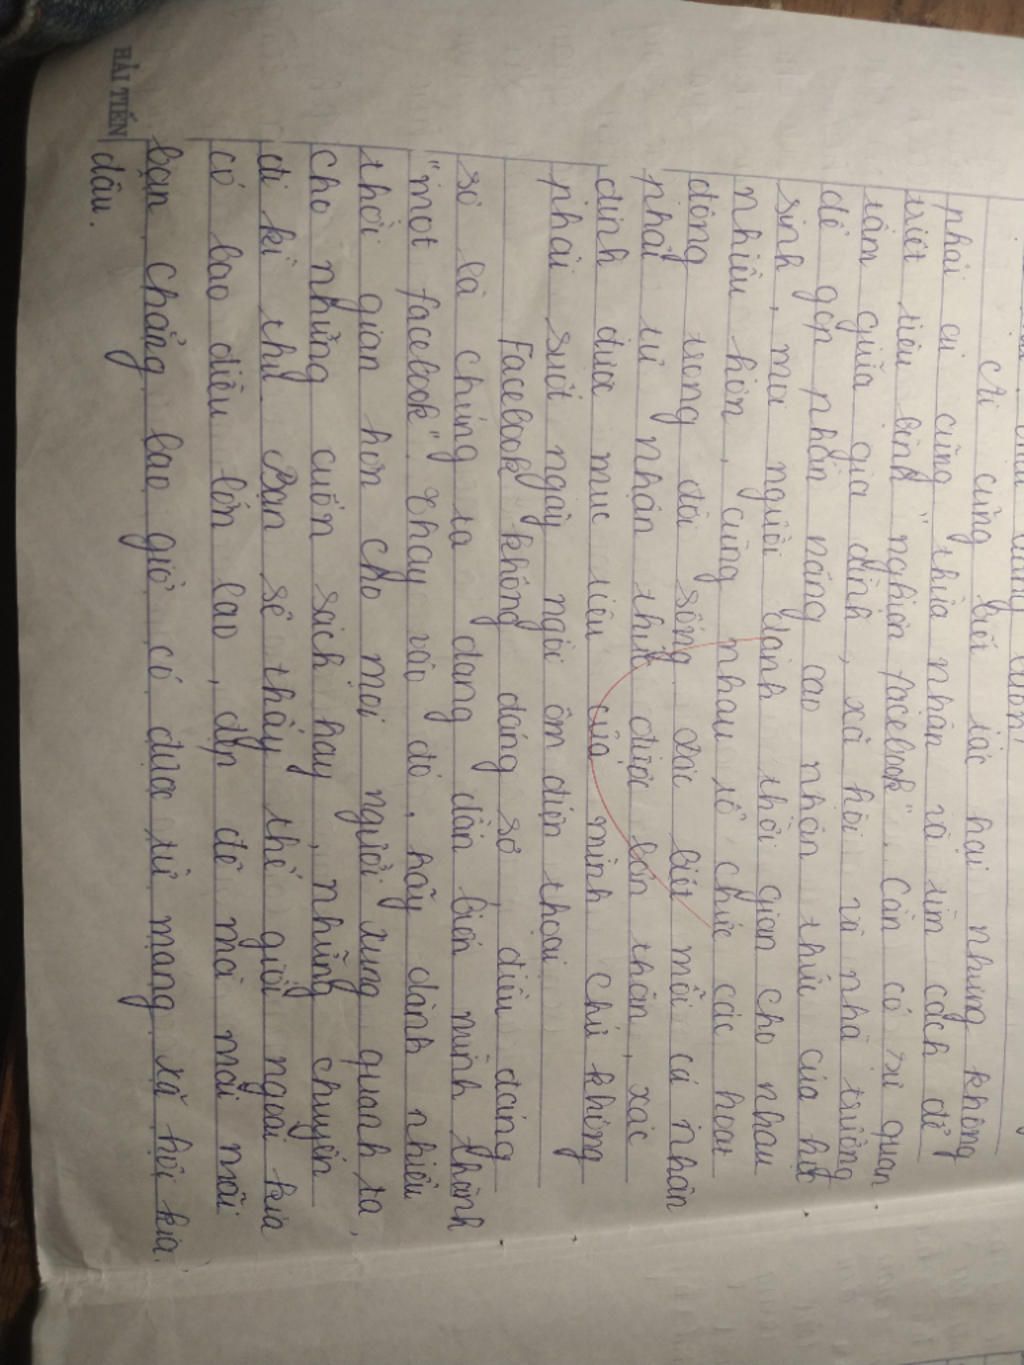 Ai cũng biết tác hại nhưng không
phải ai cũng thừa nhận và tìm cách để
triệt tiêu bệnh "nghiện facebook". Cần có sự quan
tâm giữa gia đình, xã hội và nhà trường
để góp phần nâng cao nhận thức của học
sinh, mọi người dành thời gian cho nhau
nhiều hơn, cùng nhau tổ chức các hoạt
động trong đời sống. Đặc biệt mỗi cá nhân
phải tự nhận thức được bản thân, xác
định được mục tiêu của mình chứ không
phải suốt ngày ngồi ôm điện thoại.
Facebook không đáng sợ, điều đáng
sợ là chúng ta đang dần biến mình thành
"mọt facebook". Thay vào đó, hãy dành nhiều
thời gian hơn cho mọi người xung quanh ta,
cho những cuốn sách hay, những chuyến
đi kì thú. Bạn sẽ thấy thế giới ngoài kia
có bao điều lớn lao, đẹp đẽ mà mãi mãi
bạn chẳng bao giờ có được từ mạng xã hội kia
đâu.
HẢI TIẾN